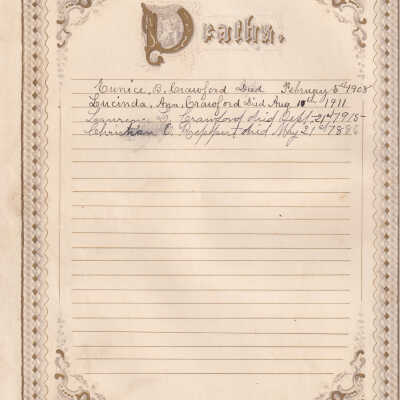 Deaths.
Eunice. B. Crawford Died February 5th 1908
Lucinda. Ann. Crawford Died Aug 10th 1911
Crawford died Sept 21st 1915
Christian C. died May 21st 1886